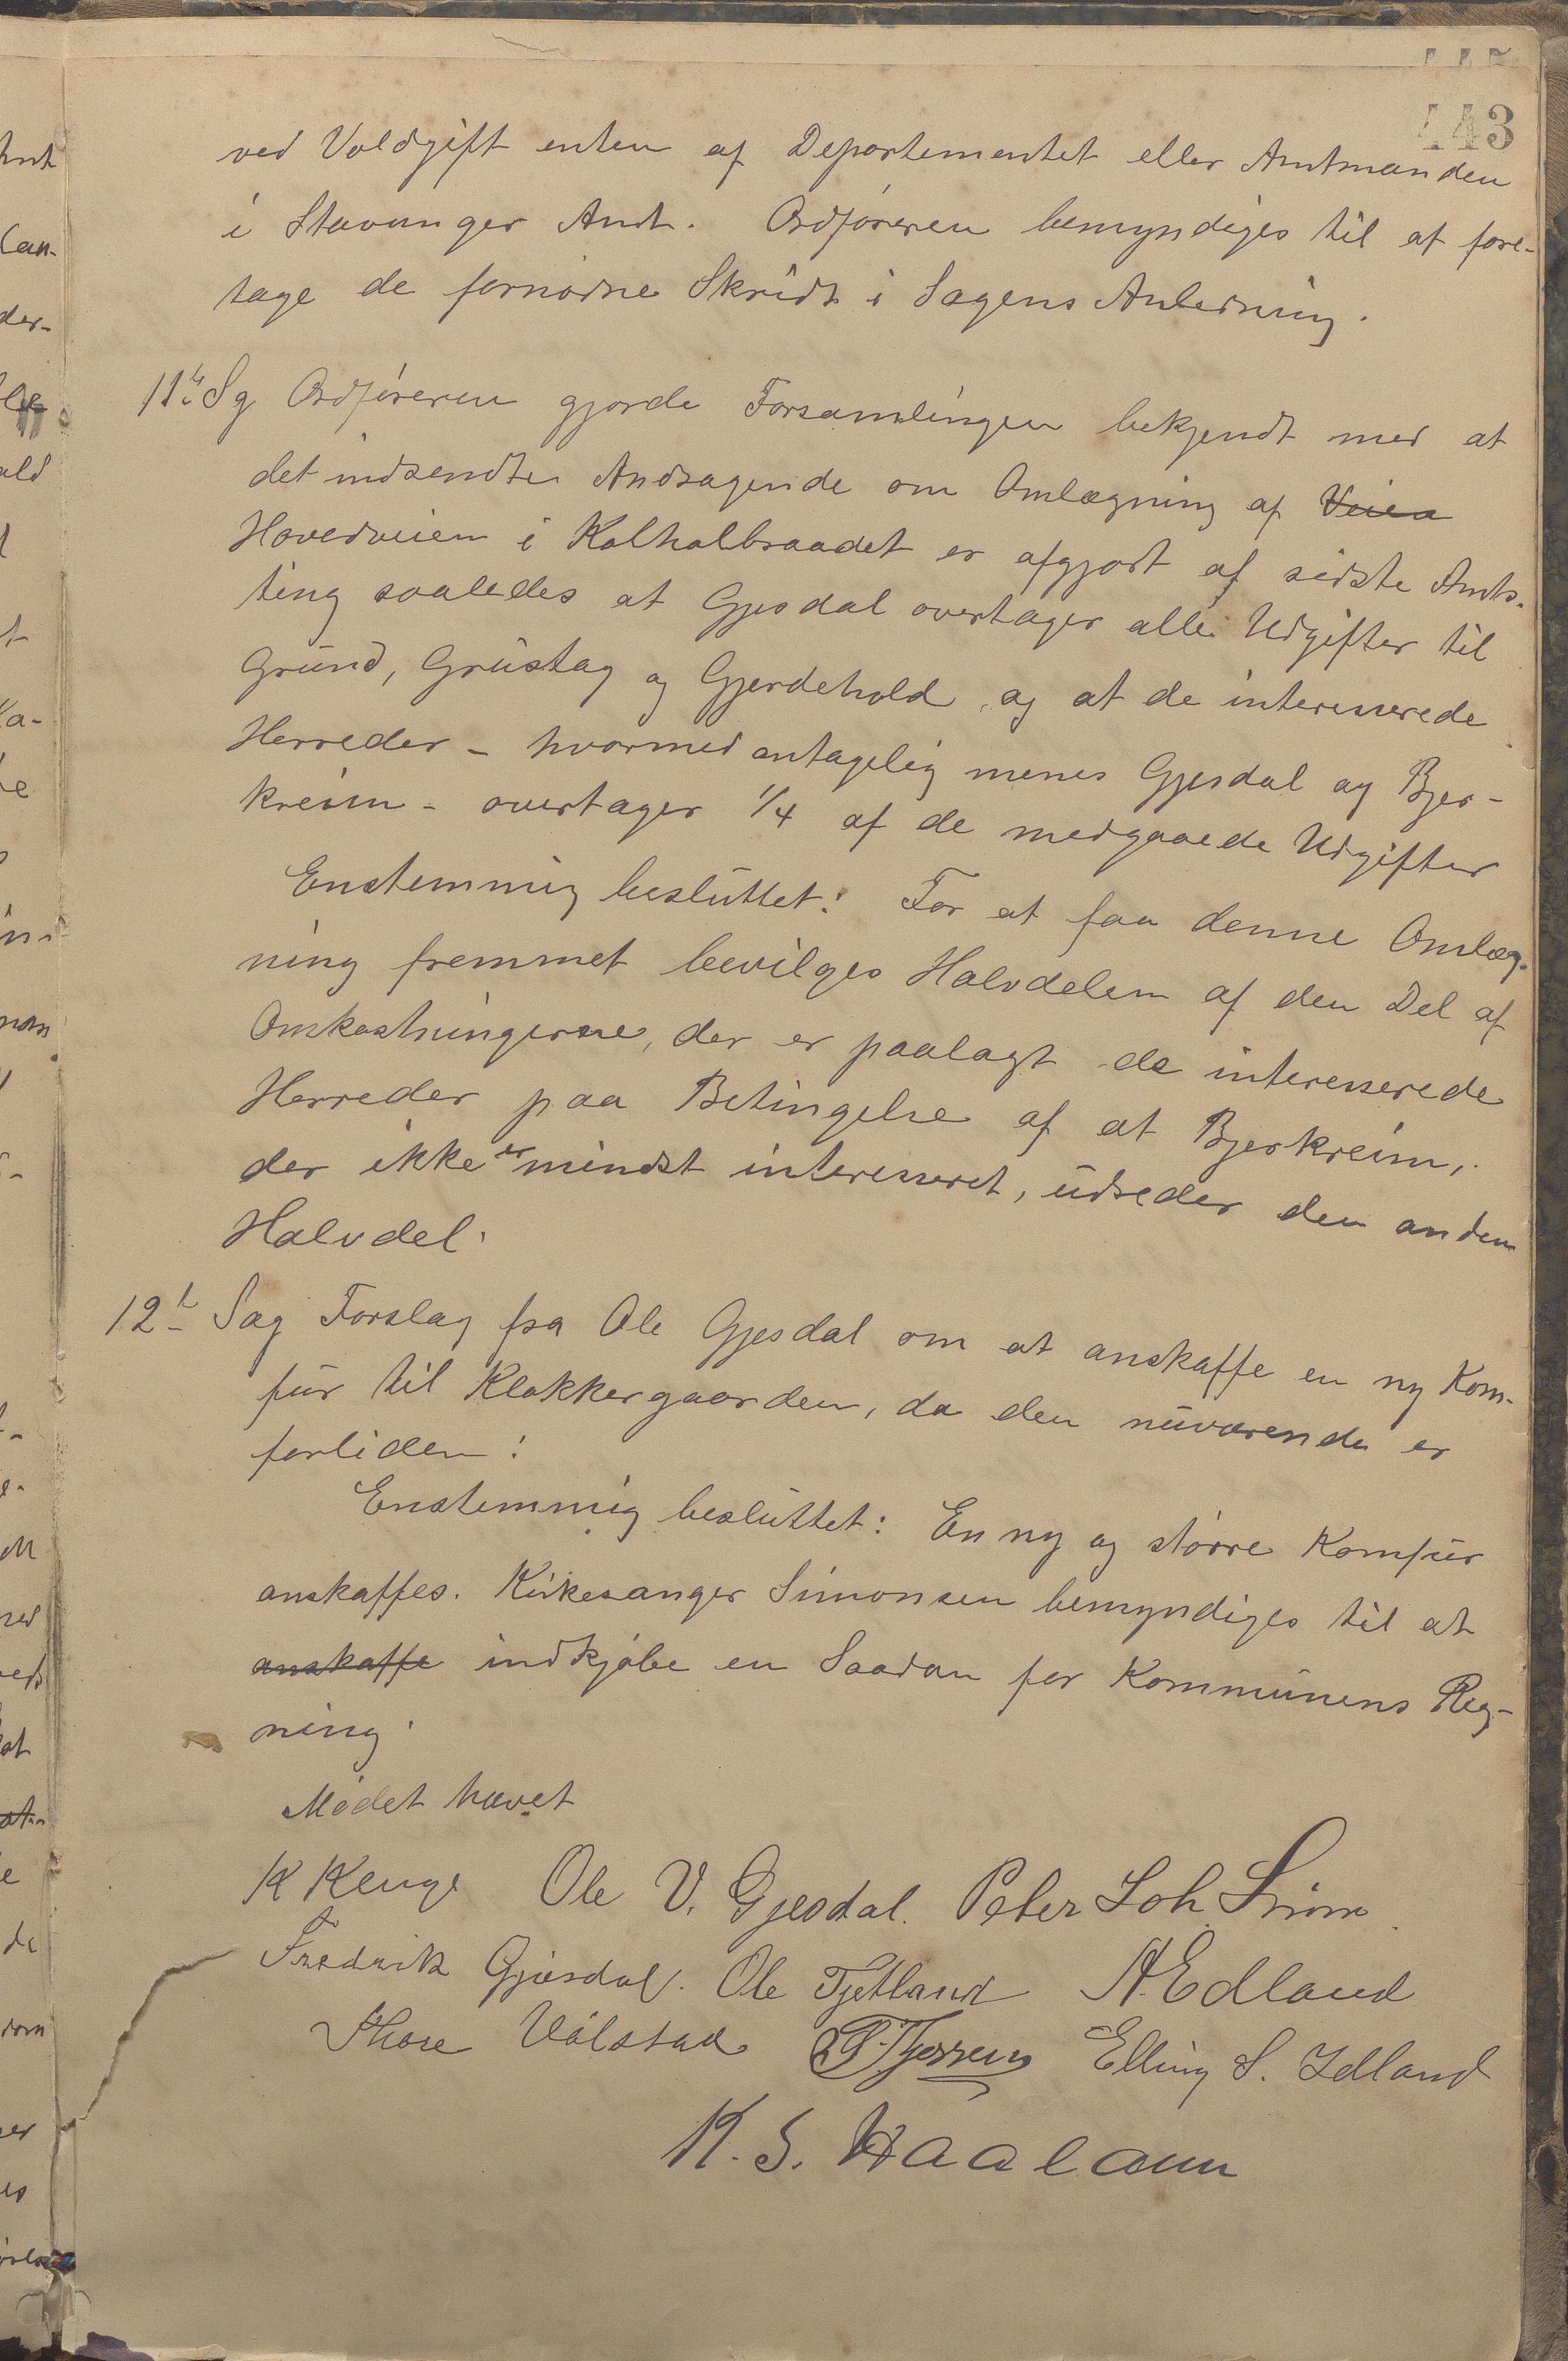 443
ved Voldgift enten af Departementet eller Amtmanden
i Stavanger Amt. Ordføreren bemyndiges til at fore-
tage de fornødne Skridt i Sagens Anledning.
11te Sg Ordføreren gjorde Forsamlingen bekjendt med at
det indsendte Andragende om Omlægning af Veien
Hovedveien i Kolholbraadet er afgjort af sidste Amts-
ting saaledes at Gjesdal overtager alle Udgifter til
Grund, Grustag og Gjerdehold, og at de interesserede
Herreder - hvormed antagelig menes Gjesdal og Bjer-
kreim - overtager 1/4 af de medgaaede Udgifter
Enstemmig besluttet: For at faa denne Omlæg-
ning fremmet bevilges Halvdelen af den Del af
Omkostningerne, der er paalagt de interesserede
Herreder paa Betingelse af at Bjerkreim,
der ikke er mindst interesseret, udreder den anden
Halvdel.
12te Sag Forslag fra Ole Gjesdal om at anskaffe en ny Kom-
fur til Klokkergaarden, da den nuværende er
forliden:
Enstemmig besluttet: En ny og større Komfur
anskaffes. Kirkesanger Simonsen bemyndiges til at
anskaffe indkjøbe en Saadan for Kommunens Reg-
ning.
Mødet hævet
K Kluge Ole V. Gjesdal. Peter Joh.
Fredrik Gjesdal. Ole Tjetland A. Edland
Thore Ualstad Elling S. Idland
K. S. Haaland